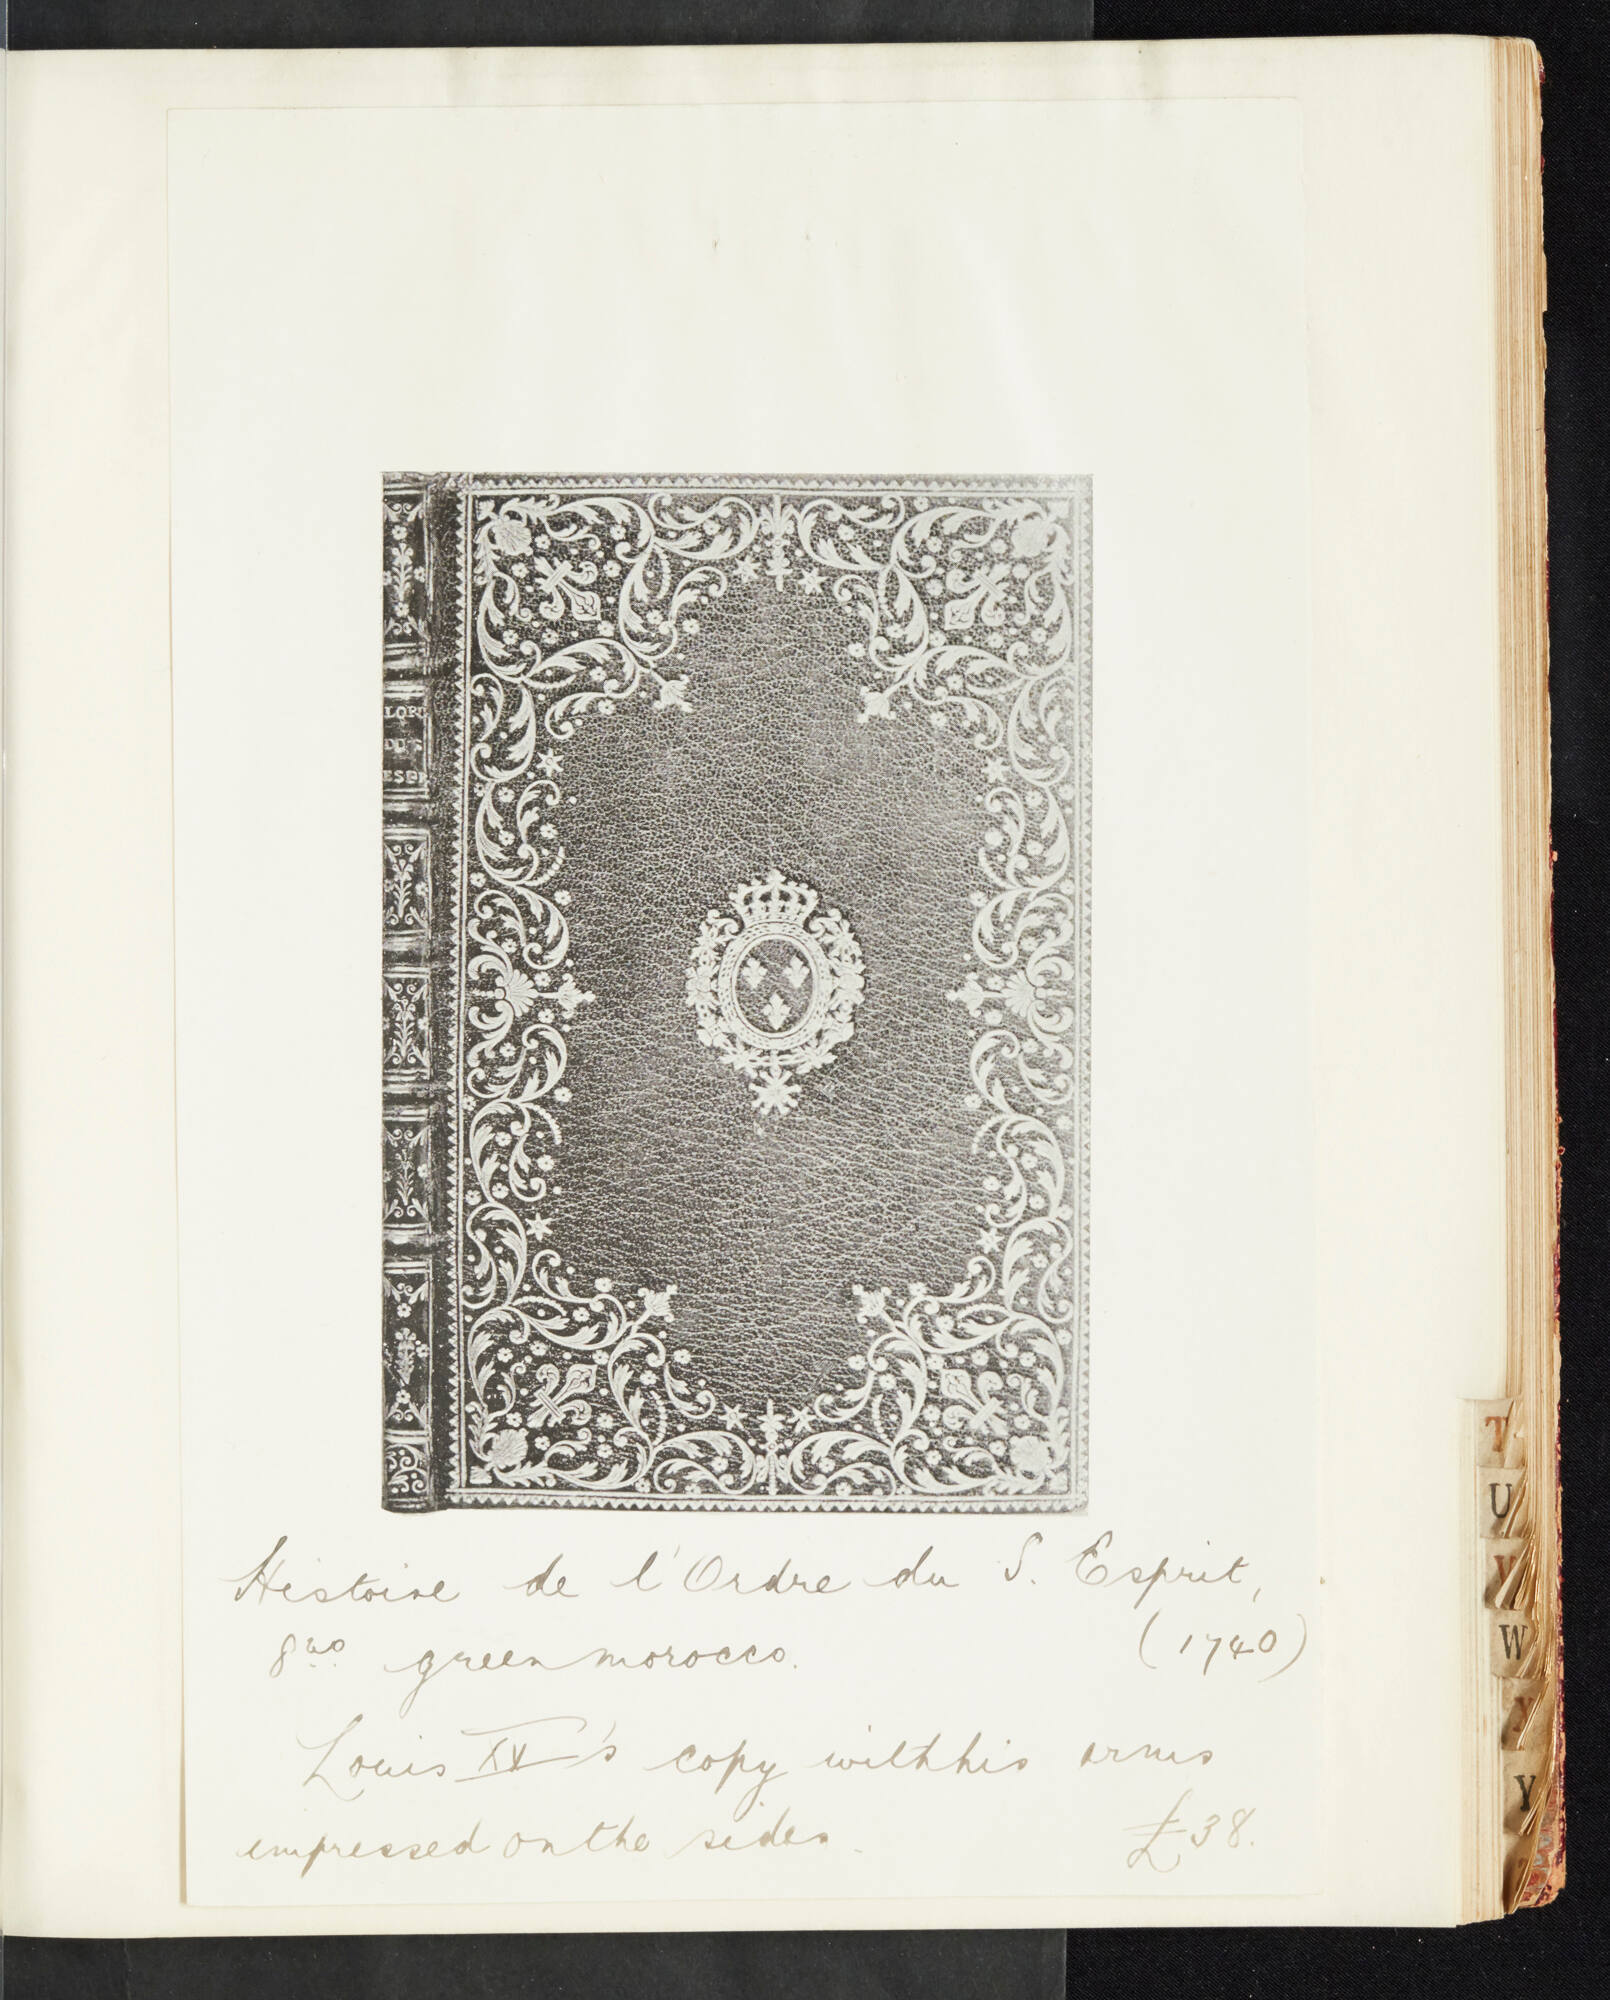 LORD
DU S
ESPR
Histoire de l'Ordre du S. Esprit,
8vo green morocco. (1740)
Louis XV's copy with his arms
impressed on the sides. £38.
T
U
V
W
X
Y